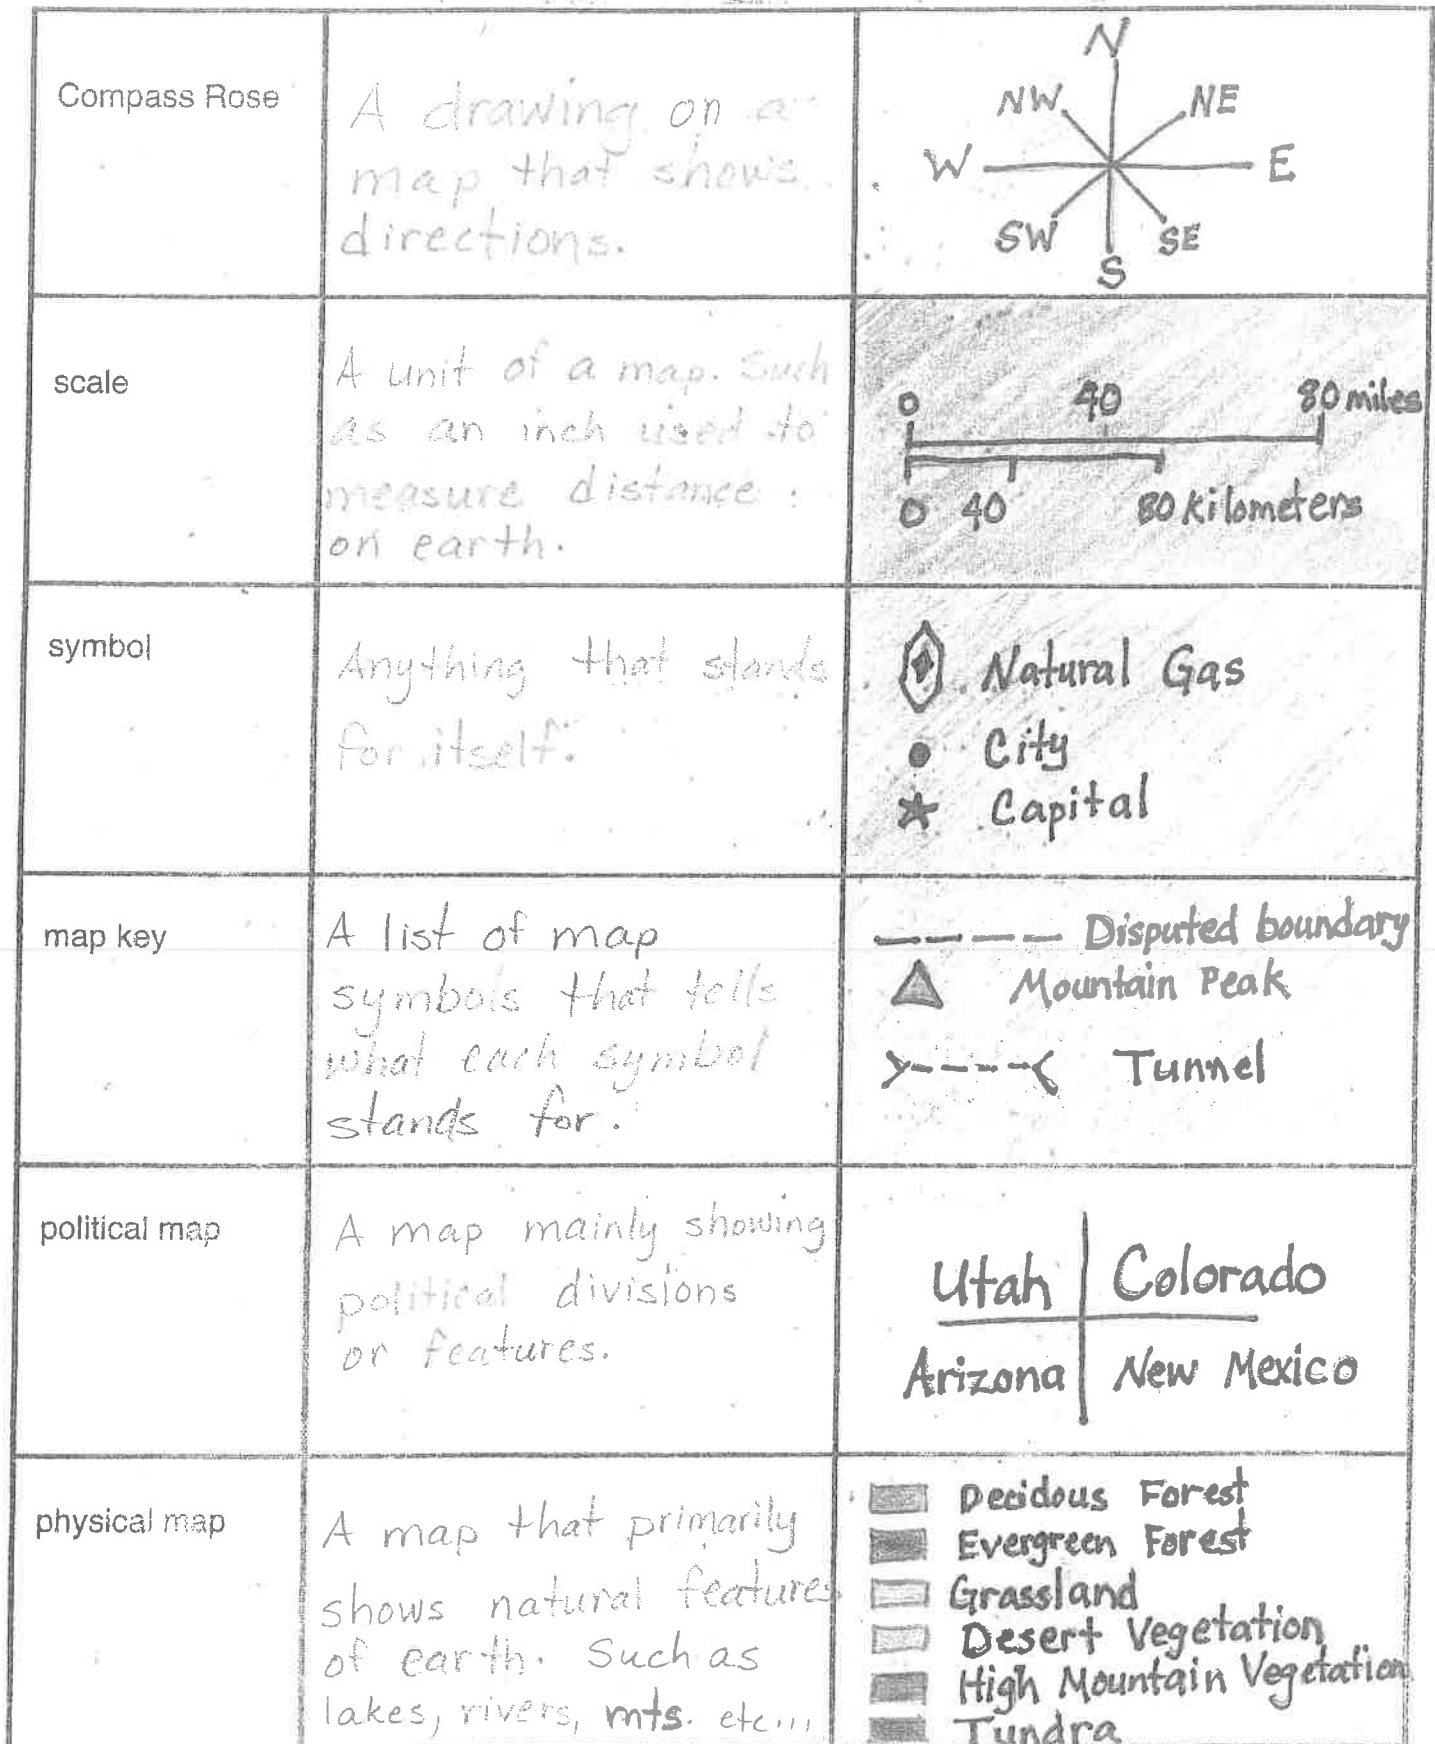 Compass Rose
A drawing on a
map that shows
directions.
N
NW NE
W E
SW SE
S
scale
A unit of a map. Such
as an inch used to
measure distance
on earth.
0 40 80 miles
0 40 80 kilometers
symbol
Anything that stands
for itself.
Natural Gas
City
Capital
map key
A list of map
symbols that tells
what each symbol
stands for.
Disputed boundary
Mountain Peak
Tunnel
political map
A map mainly showing
political divisions
or features.
Utah Colorado
Arizona New Mexico
physical map
A map that primarily
shows natural features
of earth. Such as
lakes, rivers, mts. etc...
Decidous Forest
Evergreen Forest
Grassland
Desert Vegetation
High Mountain Vegetation
Tundra